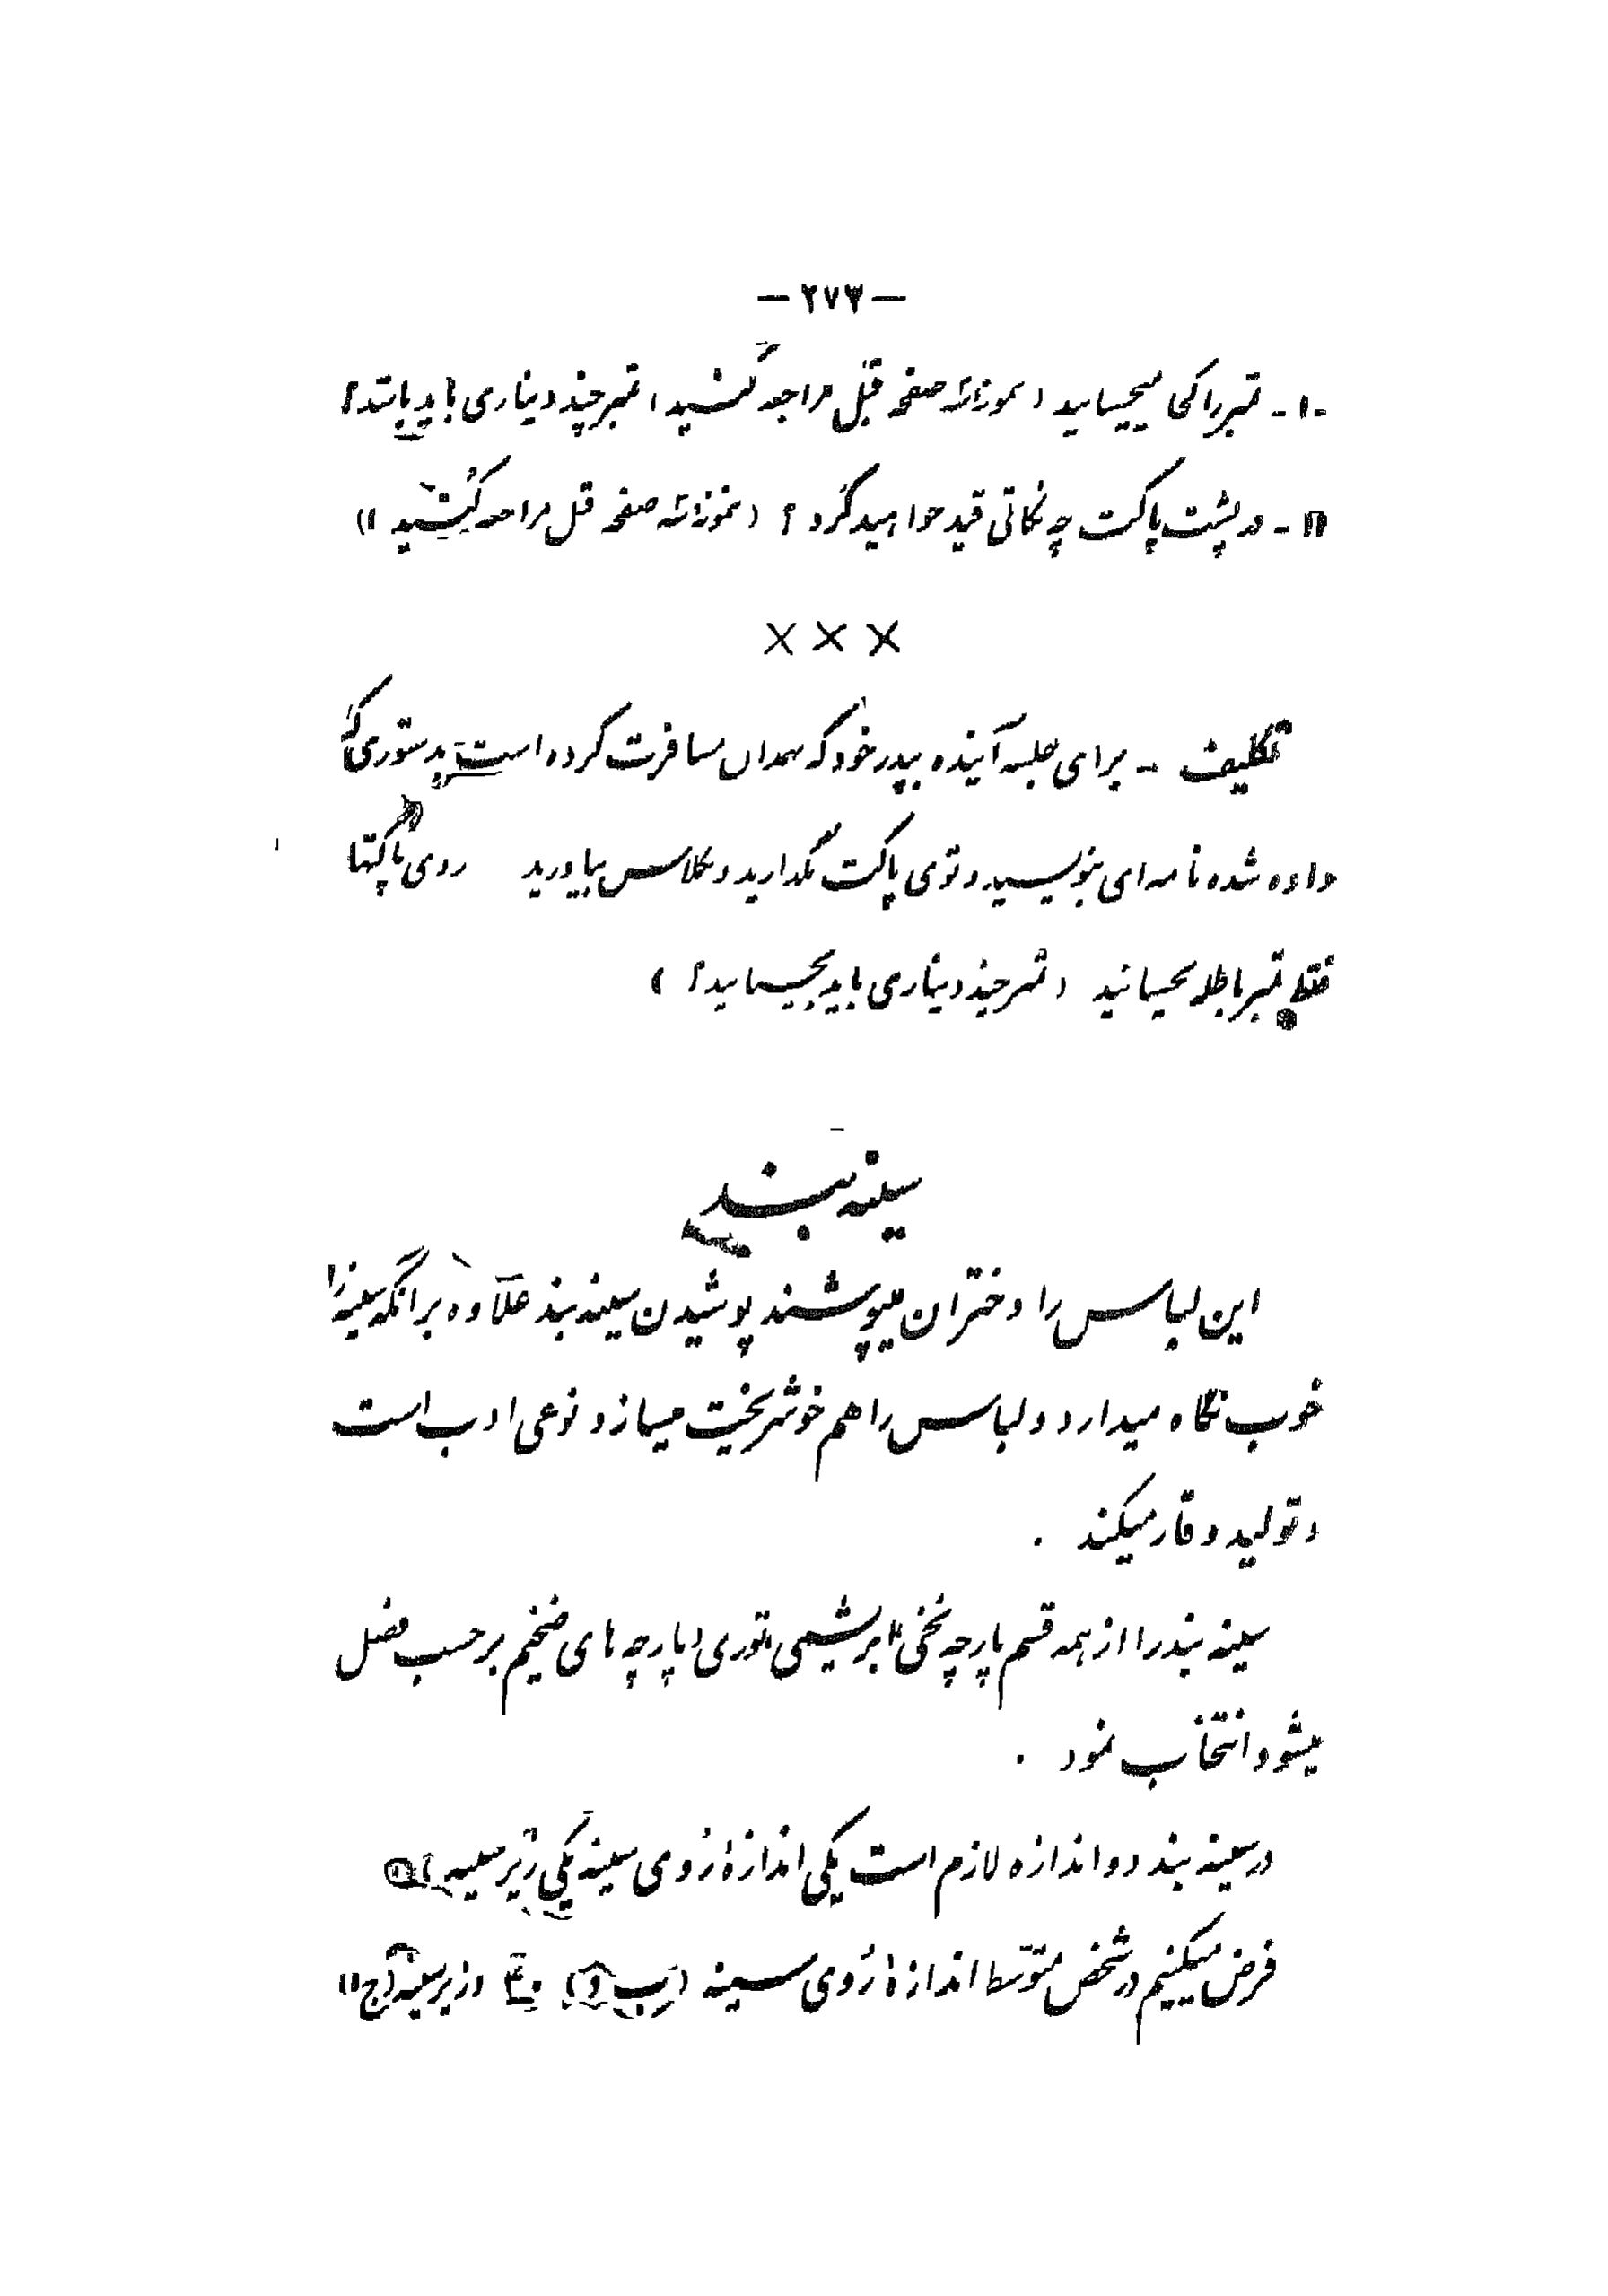 — ۲۷۳ —
۱۰- تمبر را کجا میچسبانید (بنمونهٔ صفحه قبل مراجعه کنید) تمبر چند دیناری باید باشد؟
۱۱- در پشت پاکت چه نکاتی قید خواهید کرد؟ (بنمونهٔ صفحه قبل مراجعه کنید)
× × ×
تکلیف - برای جلسه آینده بپدر خود که بهمدان مسافرت کرده است بدستوری که
داده شده نامه‌ای بنویسید و توی پاکت بگذارید و بکلاس بیاورید روی پاکتها
فقط تمبر باطله بچسبانید (تمبر چند دیناری باید بچسبانید؟)
سینه بند
این لباس را دختران میپوشند پوشیدن سینه بند علاوه بر آنکه سینه را
خوب نگاه میدارد و لباس را هم خوش ریخت میسازد نوعی ادب است
و تولید وقار میکند .
سینه بند را از همه قسم پارچه نخی ابریشمی توری پارچه های ضخیم بر حسب فصل
میشود انتخاب نمود .
در سینه بند دو اندازه لازم است یکی اندازهٔ روی سینه یکی زیر سینه
فرض میکنیم در شخص متوسط اندازهٔ روی سینه (ب و) ۴۰ و زیر سینه (ج